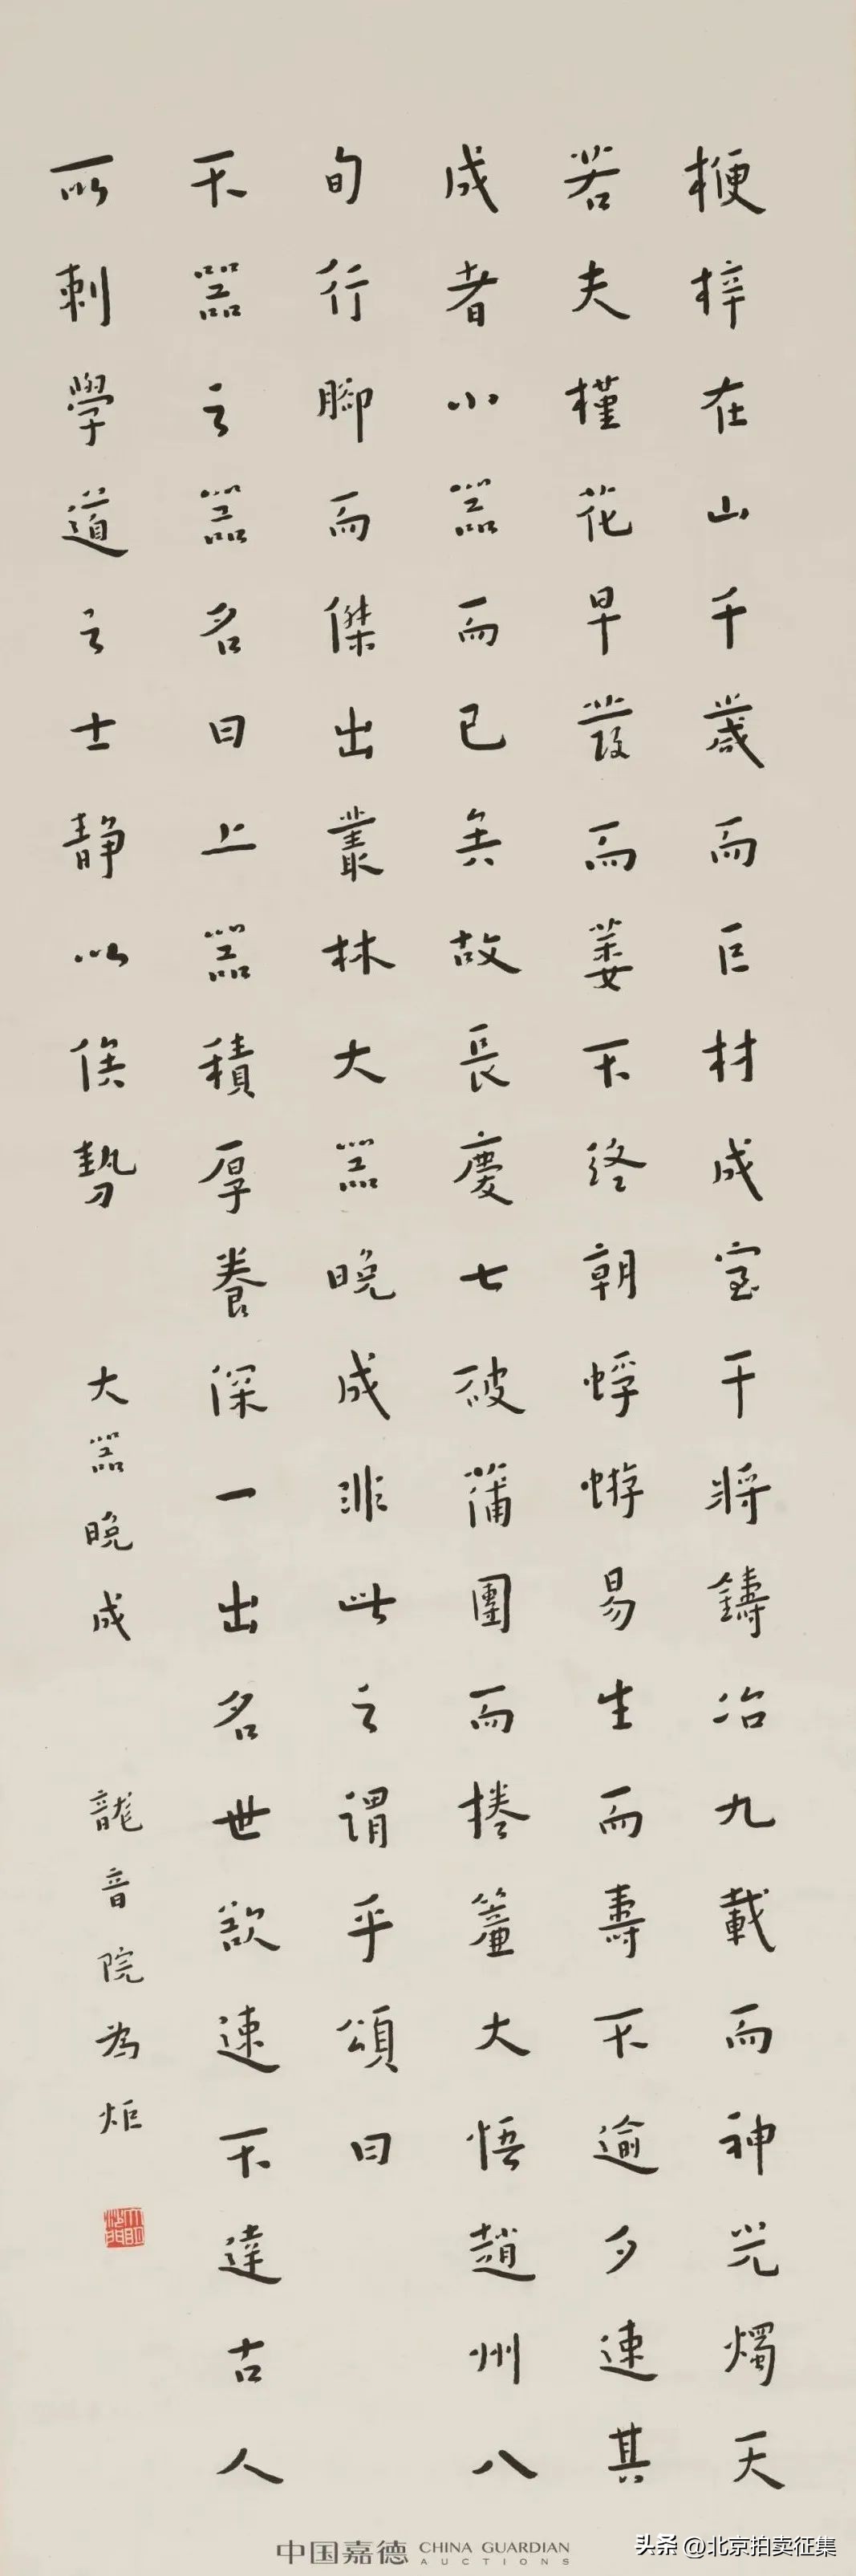 梗梓在山千歲而巨材成室干將鑄冶九載而神光燭天
若夫槿花早發而萎不終朝蜉蝣易生而壽不逾夕速其
成者小器而已矣故長慶七破蒲團而捲簾大悟趙州八
旬行腳而傑出叢林大器晚成非此之謂乎頌曰
不器之器名曰上器積厚養深一出名世欲速不達古人
所刺學道之士靜以俟勢
大器晚成
龍音院為炬
中国嘉德 CHINA GUARDIAN
AUCTIONS
头条 @北京拍卖征集